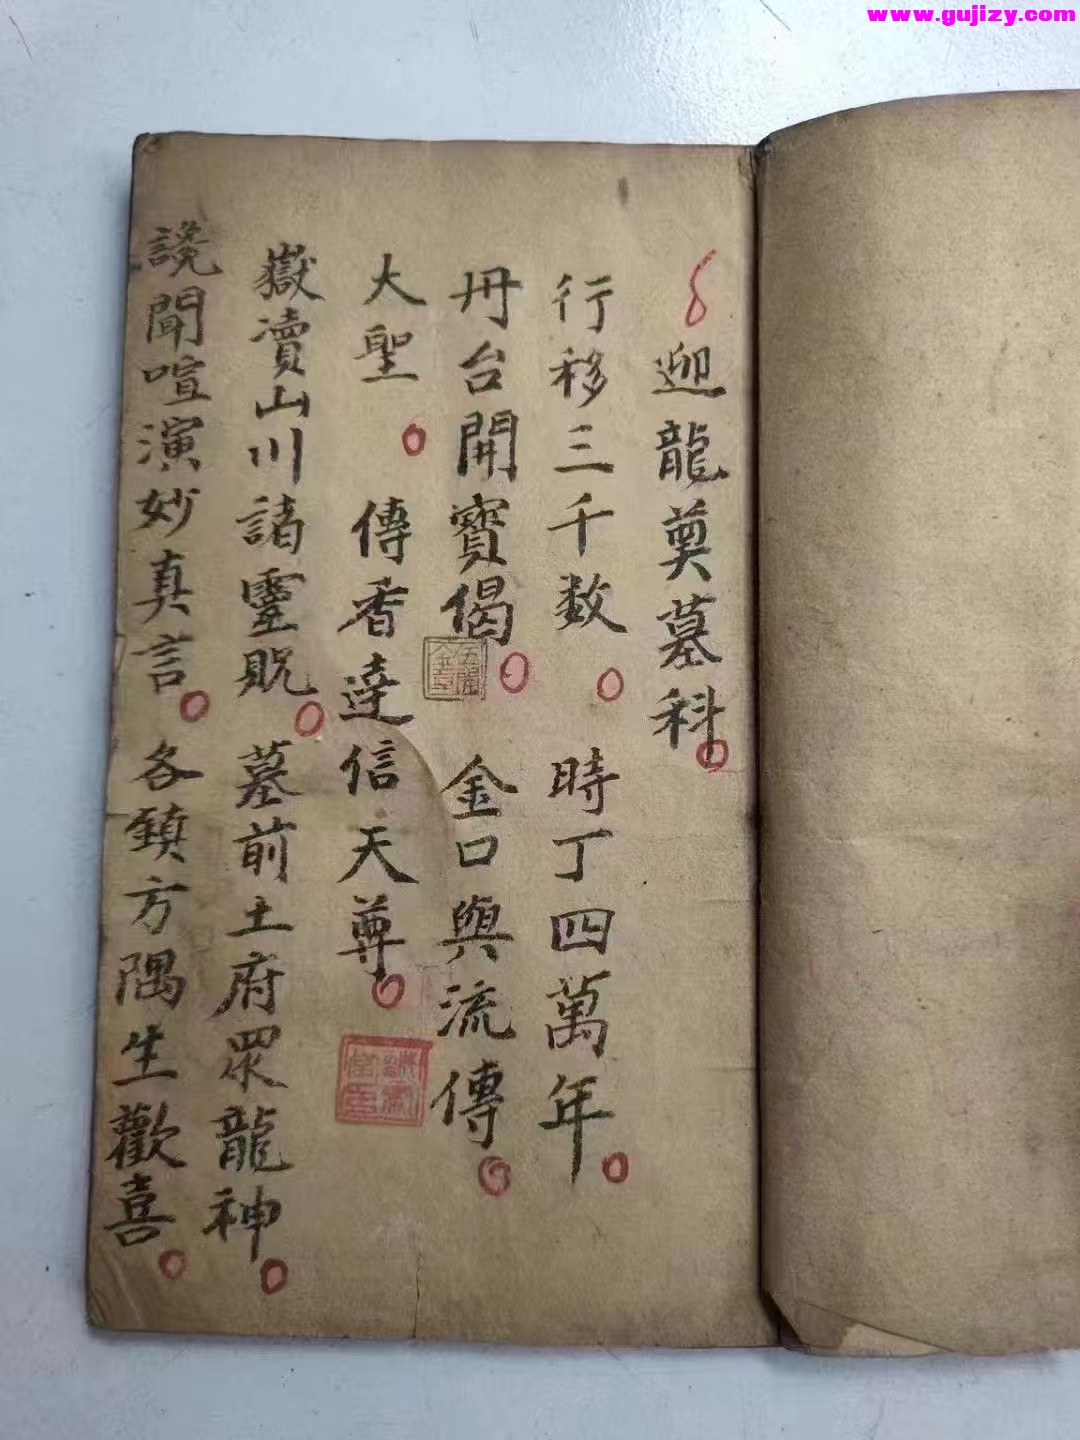 www.gujizy.com
迎龍奠墓科
行移三千数 時丁四萬年
丹台開寶偈 金口與流傳
大聖 傳香達信天尊
嶽瀆山川諸靈貺 墓前土府眾龍神
讒聞喧演妙真言 各鎮方隅生歡喜